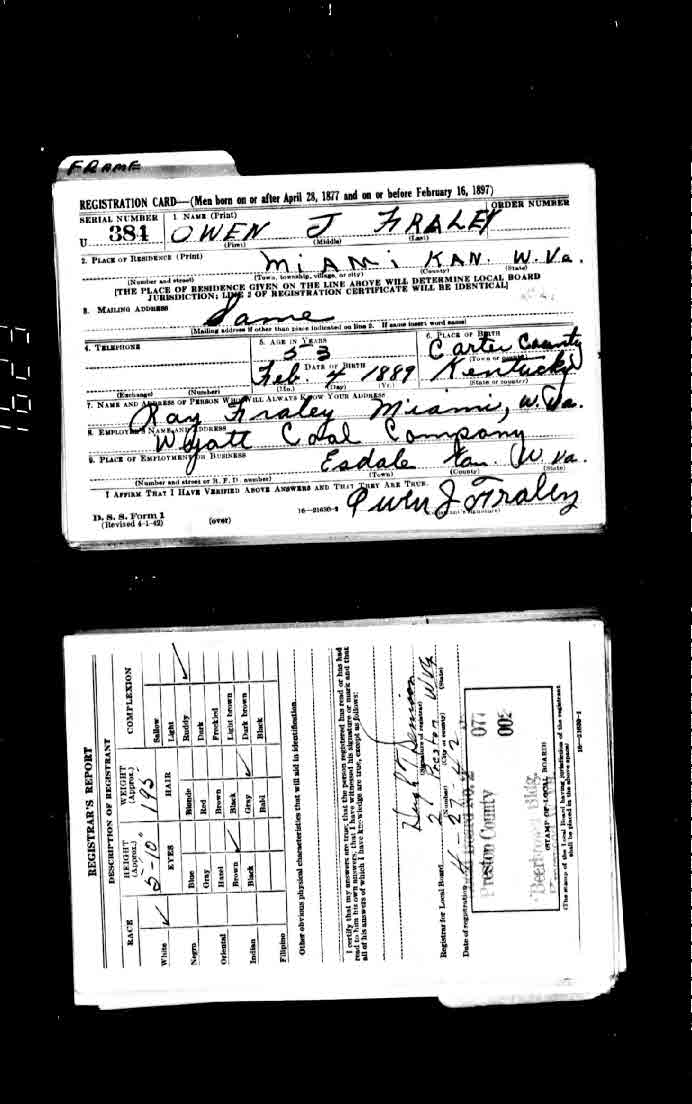 FRAME
REGISTRATION CARD—(Men born on or after April 28, 1877 and on or before February 16, 1897)
SERIAL NUMBER 1. NAME (Print) ORDER NUMBER
U 384 OWEN J FRALEY
(First) (Middle) (Last)
2. PLACE OF RESIDENCE (Print)
MIAMI KAN. W. Va.
(Number and street) (Town, township, village, or city) (County) (State)
[THE PLACE OF RESIDENCE GIVEN ON THE LINE ABOVE WILL DETERMINE LOCAL BOARD
JURISDICTION; LINE 2 OF REGISTRATION CERTIFICATE WILL BE IDENTICAL]
3. MAILING ADDRESS
Same
[Mailing address if other than place indicated on line 2. If same insert word same]
4. TELEPHONE 5. AGE IN YEARS 6. PLACE OF BIRTH
53 Carter County
DATE OF BIRTH (Town or county)
Feb. 4 1889 Kentucky
(Exchange) (Number) (Mo.) (Day) (Yr.) (State or country)
7. NAME AND ADDRESS OF PERSON WHO WILL ALWAYS KNOW YOUR ADDRESS
Ray Fraley Miami, W. Va.
8. EMPLOYER'S NAME AND ADDRESS
Wyatt Coal Company
9. PLACE OF EMPLOYMENT OR BUSINESS
Esdale Kan. W. Va.
(Number and street or R. F. D. number) (Town) (County) (State)
I AFFIRM THAT I HAVE VERIFIED ABOVE ANSWERS AND THAT THEY ARE TRUE.
Owen J Fraley
D. S. S. Form 1
(Revised 4-1-42) (over) 16—21630-2 (Registrant's signature)
REGISTRAR'S REPORT
DESCRIPTION OF REGISTRANT
RACE HEIGHT (Approx.) WEIGHT (Approx.) COMPLEXION
5-10" 195
White ✓ EYES HAIR Sallow
Light
Negro Blue Blonde Ruddy ✓
Gray Red Dark
Oriental Hazel Brown Freckled
Brown ✓ Black Light brown
Indian Black Gray ✓ Dark brown
Bald Black
Filipino
Other obvious physical characteristics that will aid in identification
I certify that my answers are true; that the person registered has read or has had
read to him his own answers; that I have witnessed his signature or mark and that
all of his answers of which I have knowledge are true, except as follows:
(Signature of registrar)
Registrar for Local Board 2 Preston W Va
(Number) (City or county) (State)
Date of registration 4-27-42
077
Preston County 002
Bldg.
(STAMP OF LOCAL BOARD)
(The stamp of the Local Board having jurisdiction of the registrant
shall be placed in the above space)
16—21630-1